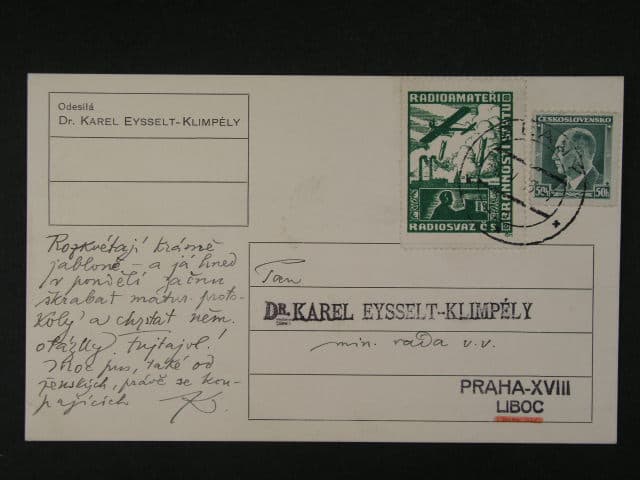 Odesílá
Dr. KAREL EYSSELT-KLIMPÉLY
RADIOAMATEŘI
BRANNOSTI STÁTU
RADIOSVAZ ČS
ČESKOSLOVENSKO
50h 50h
Rozkvétají krásně
jabloně – a já hned
v pondělí začnu
škrabat matur. proto-
koly a chystat něm.
otázky. Tujtajxl!
Moc pus, také od
ženských, právě se kou-
pajících K.
Pan
DR. KAREL EYSSELT-KLIMPÉLY
min. rada v.v.
PRAHA-XVIII
LIBOC